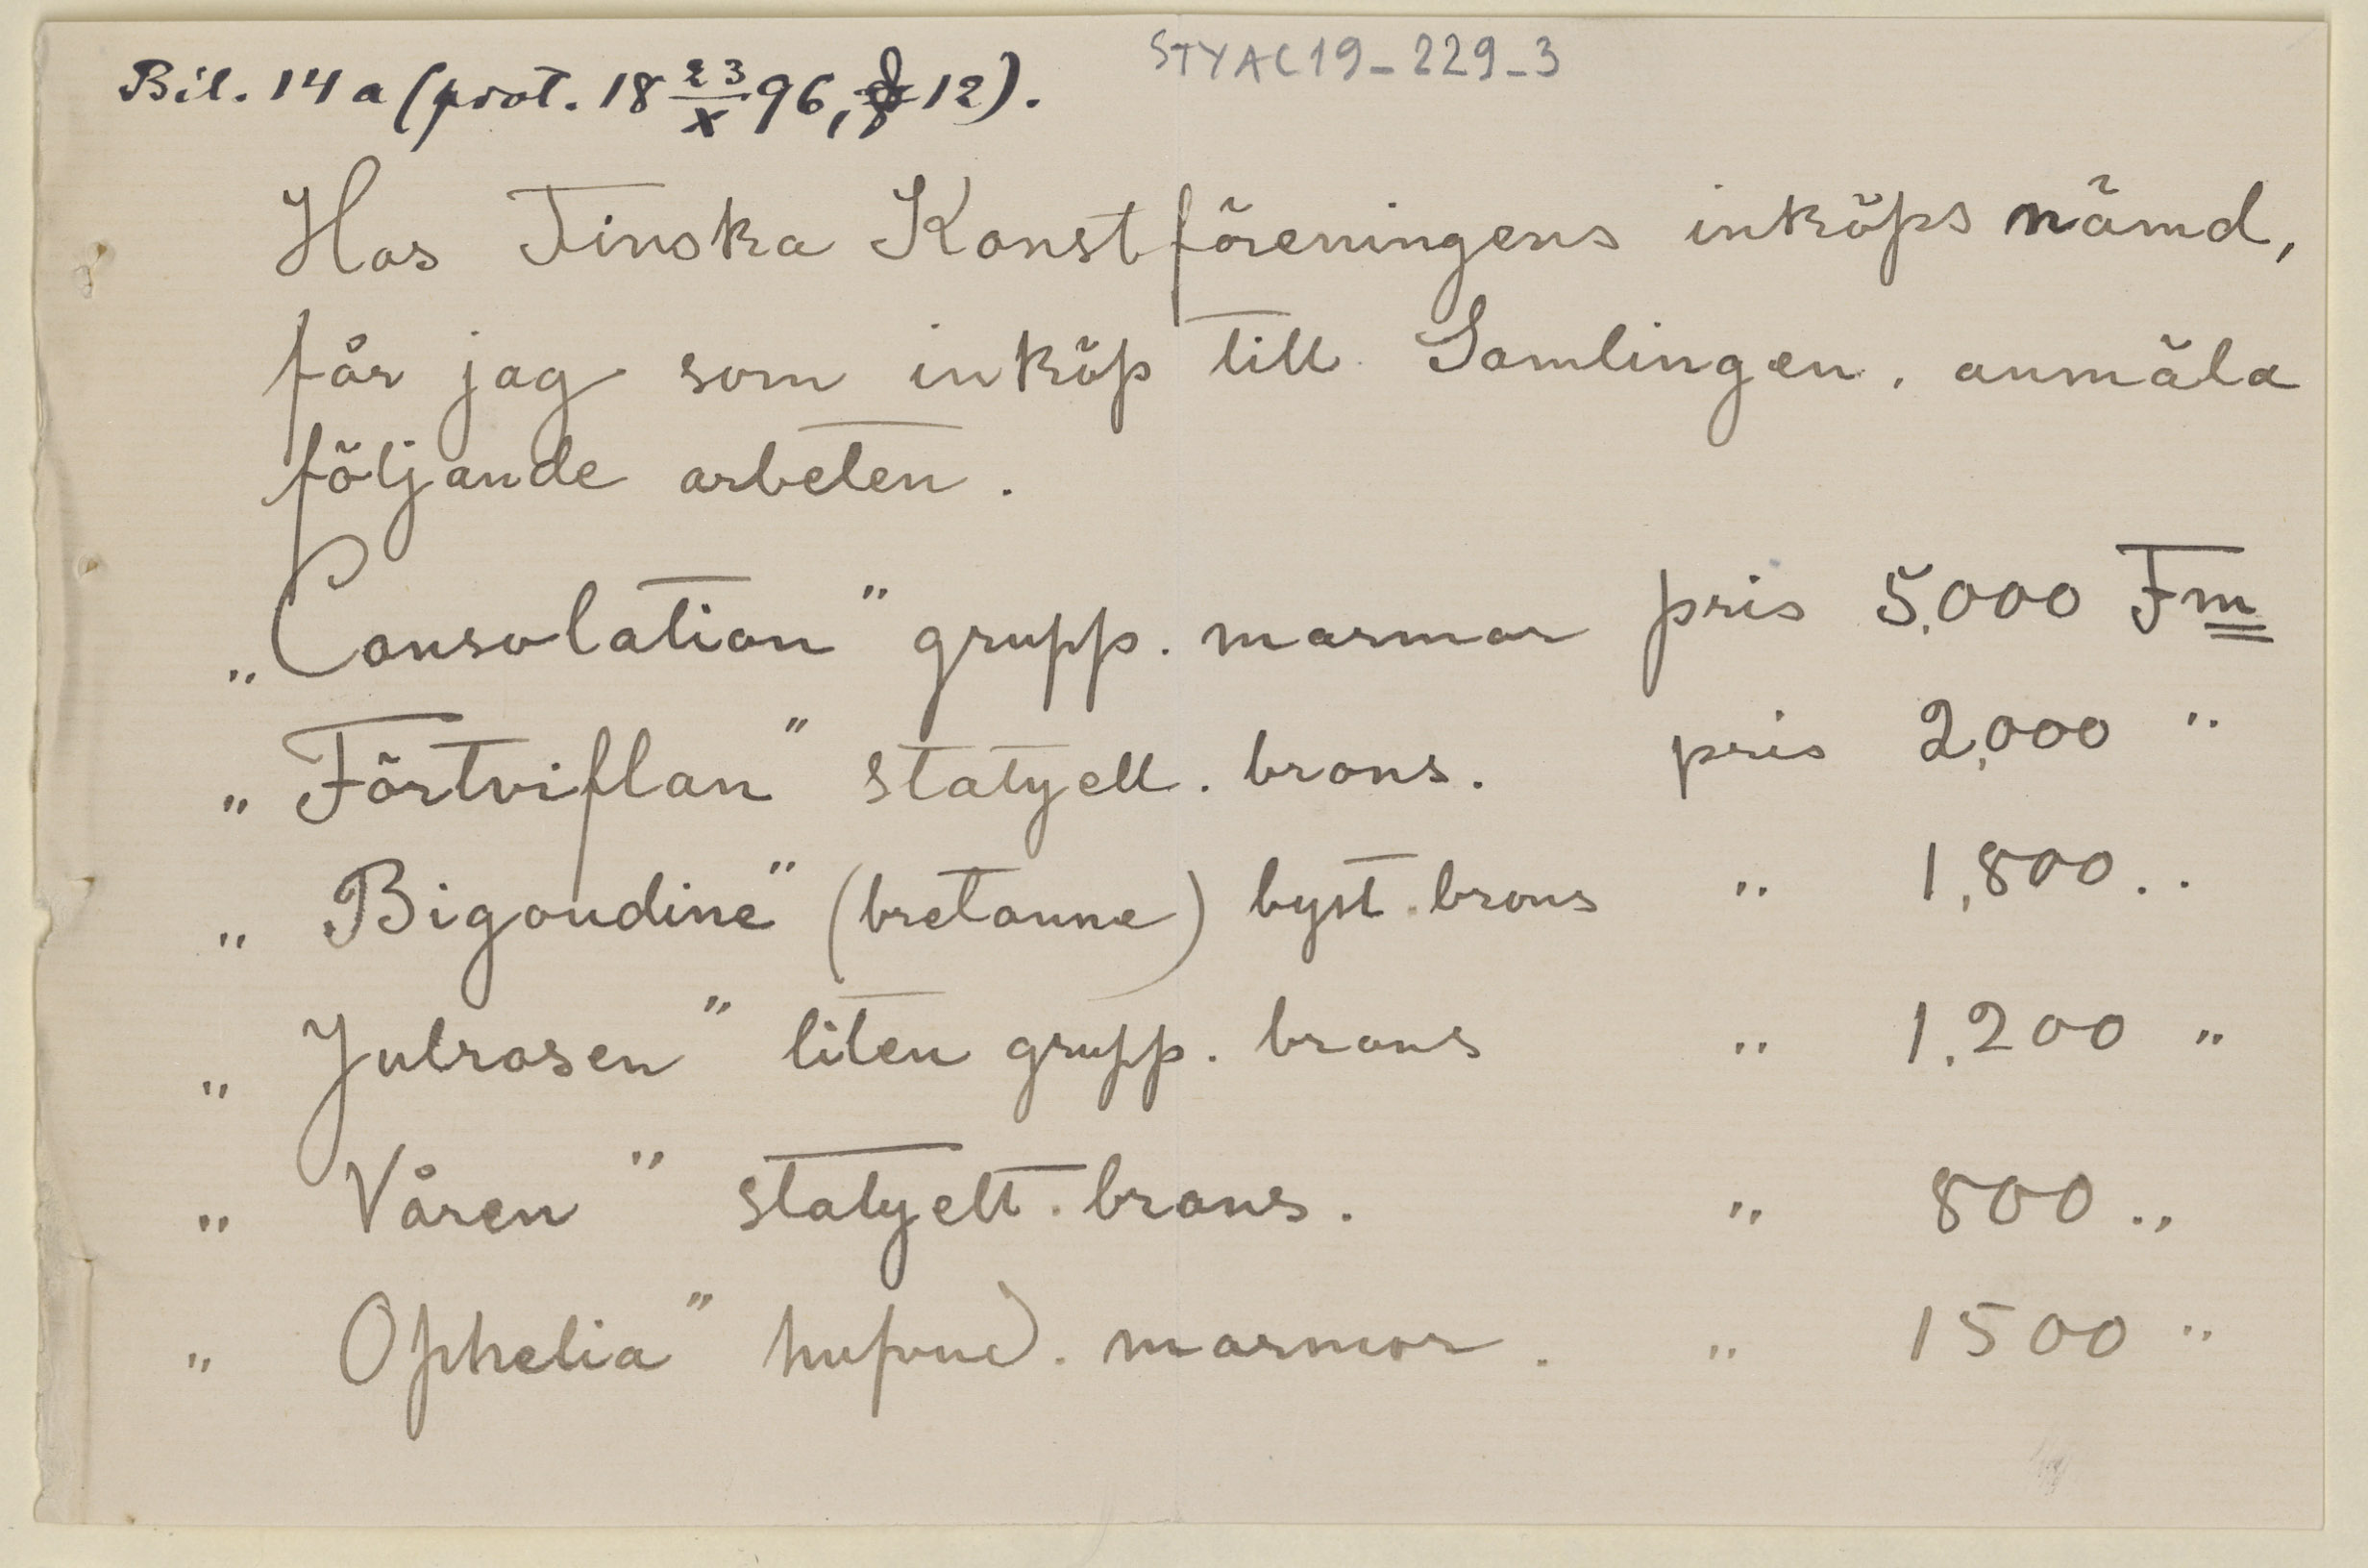 Bil. 14 a (prot. 18 23/X 96, § 12).
STYAC19_229_3
Hos Finska Konstföreningens inköps nämd,
får jag som inköp till Samlingen. anmäla
följande arbeten.
„Consolation" grupp. marmor pris 5,000 Fm
„Förtviflan" statyett. brons. pris 2,000 "
„Bigoudine" (bretonne) byst. brons " 1,800 "
„Julrosen" liten grupp. brons " 1,200 "
„Våren" statyett. brons. " 800 "
„Ophelia" hufvud. marmor. " 1500 "